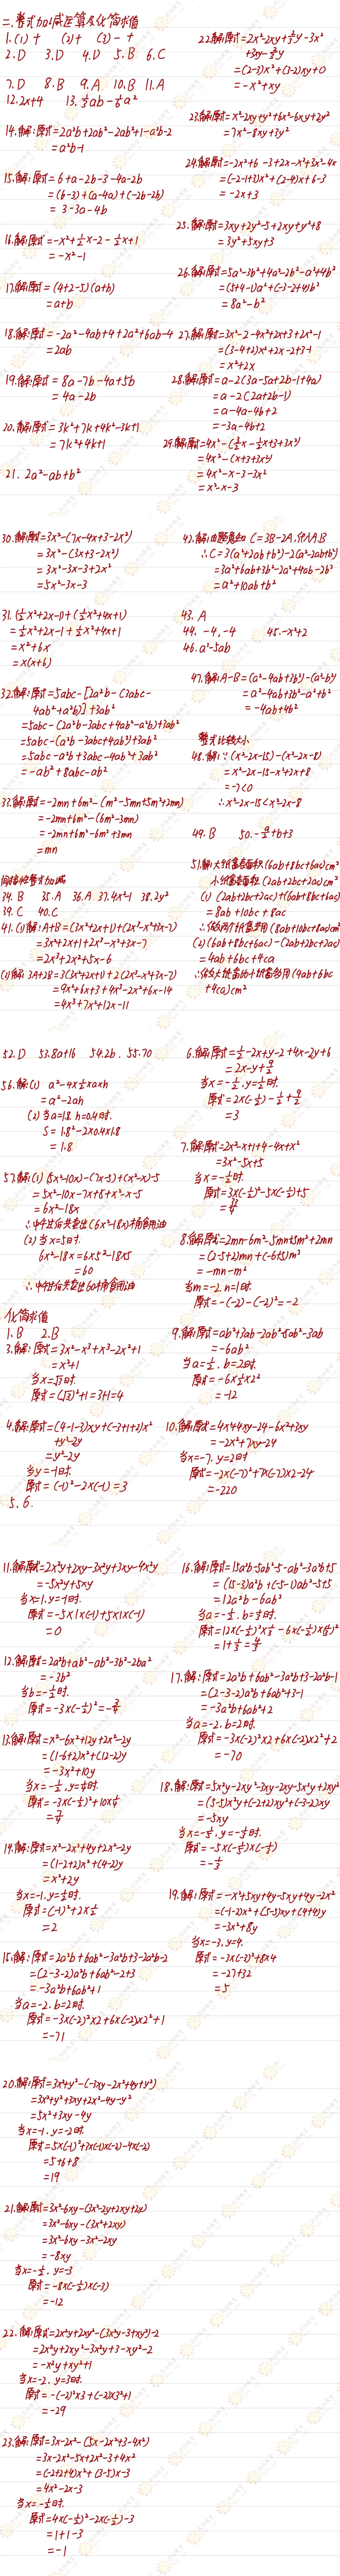 二、整式加减运算及化简求值
1.(1) + (2)+ (3) - +
2.D 3.D 4.D 5.B 6.C
7.D 8.B 9.A 10.B 11.A
12.2x+4 13.⅓ab-⅙a²
14.解:原式=2a²b+2ab²-2ab²+1-a²b-2
=a²b-1
15.解:原式=6+a-2b-3-4a-2b
=(6-3)+(a-4a)+(-2b-2b)
= 3-3a-4b
16.解:原式=-x²+½x-2-½x+1
=-x²-1
17.解:原式=(4+2-5)(a+b)
=a+b
18.解:原式=-2a²-4ab+4+2a²+6ab-4
=2ab
19.解:原式= 8a-7b-4a+5b
= 4a-2b
20.解:原式=3k²+7k+4k²-3k+1
=7k²+4k+1
21. 2a²-ab+b²
=(2-3)x²+(3-2)xy+0
=-x²+xy
23.解:原式=x²-2xy+y²+6x²-6xy+2y²
=7x²-8xy+3y²
24.解:原式=-2x²+6-3+2x-x²+3x²-4x
=-2x+3
25.解:原式=3xy+2y²-5+2xy+y²+8
=3y²+5xy+3
26.解:原式=5a²-3b²+4a²-2b²-a²+4b²
=(5+4-1)a²+(-3-2+4)b²
=8a²-b²
27.解:原式=3x²-2-4x²+2x+3+2x²-1
=(3-4+2)x²+2x-2+3-1
=x²+2x
28.解:原式=a-2(3a-5a+2b-1+4a)
=a-2(2a+2b-1)
=a-4a-4b+2
=-3a-4b+2
=4x²-(x+3+3x²)
=4x²-x-3-3x²
=x²-x-3
30.解:原式=3x²-(7x-4x+3-2x²)
=3x²-(3x+3-2x²)
=3x²-3x-3+2x²
=5x²-3x-3
31.(½x²+2x-1)+(½x²+4x+1)
=½x²+2x-1+½x²+4x+1
=x²+6x
=x(x+6)
32.解:原式=5abc-[2a²b-(3abc-
4ab²+a²b)]+3ab²
=5abc-(2a²b-3abc+4ab²-a²b)+3ab²
=5abc-(a²b-3abc+4ab²)+3ab²
=5abc-a²b+3abc-4ab²+3ab²
33.解:原式=-2mn+6m²-(m²-5mn+5m²+2mn)
=-2mn+6m²-(6m²-3mn)
=-2mn+6m²-6m²+3mn
=mn
34.B 35.A 36.A 37.4x²-1 38.2y²
39.C 40.C
41.(1)解:A+B=(3x²+2x+1)+(2x³-x²+3x-7)
=3x²+2x+1+2x³-x²+3x-7
=2x³+2x²+5x-6
(2)解:3A+2B=3(3x²+2x+1)+2(2x³-x²+3x-7)
=9x²+6x+3+4x³-2x²+6x-14
=4x³+7x²+12x-11
42.解:由题意知C=3B-2A,代入A.B
∴C=3(a²+2ab+b²)-2(a²-2ab+b²)
=3a²+6ab+3b²-2a²+4ab-2b²
=a²+10ab+b²
43. A
44. -4,-4 45.-x²+2
46.a²-5ab
47.解:A-B=(a²-4ab+3b²)-(a²-b²)
=a²-4ab+3b²-a²+b²
=-4ab+4b²
整式比较大小
48.解:∵(x²-2x-15)-(x²-2x-8)
=x²-2x-15-x²+2x+8
=-7<0
∴x²-2x-15<x²-2x-8
49.B
51.解:大纸盒表面积(6ab+8bc+6ac)cm²
小纸盒表面积(2ab+2bc+2ac)cm²
(1) (2ab+2bc+2ac)+(6ab+8bc+6ac)
=8ab+10bc+8ac
∴做这两个纸盒要用(8ab+10bc+8ac)cm²
(2)(6ab+8bc+6ac)-(2ab+2bc+2ac)
=4ab+6bc+4ca
∴做大纸盒的比小纸盒多用(4ab+6bc
+4ca)cm²
52.D 53.8a+16 54.2b. 55.70
=a²-2ah
(2)当a=1.8,h=0.4时.
S=1.8²-2×0.4×1.8
=1.8
57.解:(1)(5x²-10x)-(7x-5)+(x²-x)-5
=5x²-10x-7x+5+x²-x-5
=6x²-18x
(2)当x=5时.
6x²-18x=6×5²-18×5
=60
化简求值
1.B 2.B
3.解:原式=3x²-x³+x³-2x²+1
=x²+1
当x=√3时.
原式=(√3)²+1=3+1=4
4.解:原式=(4-1-3)xy+(-3+1+2)x²
+y²-2y
=y²-2y
当y=-1时.
原式=(-1)²-2×(-1)=3
5. 6.
7.解:原式=2x²-x+1+4-4x+x²
=3x²-5x+5
8.解:原式=2mn-6m²-5mn+5m²+2mn
=-mn-m²
当m=-2,n=1时.
原式=-(-2)-(-2)²=-2
9.解:原式=ab²+3ab-2ab²-5ab²-3ab
=-6ab²
当a=½,b=2时.
原式=-6×½×2²
=-12
10.解:原式=4x²+4xy-24-6x²+3xy
=-2x²+7xy-24
当x=-7,y=2时
原式=-2×(-7)²+7×(-7)×2-24
=-220
11.解:原式=2x²y+2xy-3x²y+3xy-4x²y
=-5x²y+5xy
当x=1,y=-1时.
原式=-5×1×(-1)+5×1×(-1)
=0
12.解:原式=2a²b+ab²-ab²-3b²-2ba²
=-3b²
当b=-½时.
原式=-3×(-½)²=-¾
13.解:原式=x²-6x²+12y+2x²-2y
=-3x²+10y
14.解:原式=x²-2x²+4y+2x²-2y
=(1-2+2)x²+(4-2)y
=x²+2y
当x=-1,y=½时.
原式=(-1)²+2×½
=2
15.解:原式=2a²b+6ab²-3a²b+3-2a²b-2
=(2-3-2)a²b+6ab²-2+3
=-3a²b+6ab²+1
当a=-2,b=2时.
原式=-3×(-2)²×2+6×(-2)×2²+1
=-71
16.解:原式=15a²b-5ab²-5-ab²-3a²b+5
=(15-3)a²b+(-5-1)ab²-5+5
=12a²b-6ab²
17.解:原式=2a²b+6ab²-3a²b+3-2a²b-1
=(2-3-2)a²b+6ab²+3-1
=-3a²b+6ab²+2
当a=-2,b=2时.
原式=-3×(-2)²×2+6×(-2)×2²+2
=-70
18.解:原式=5x²y-2xy²-3xy-2xy-5x²y+2xy²
=(5-5)x²y+(-2+2)xy²+(-3-2)xy
=-5xy
19.解:原式=-x²+5xy+4y-5xy+4y-2x²
=(-1-2)x²+(5-5)xy+(4+4)y
=-3x²+8y
当x=-3,y=4.
原式=-3×(-3)²+8×4
=-27+32
=5
20.解:原式=3x²+y²-(-3xy-2x²+4y+y²)
=3x²+y²+3xy+2x²-4y-y²
=5x²+3xy-4y
当x=-1,y=-2时.
原式=5×(-1)²+3×(-1)×(-2)-4×(-2)
=5+6+8
=19
21.解:原式=3x²-6xy-(3x²-2y+2xy+2y)
=3x²-6xy-(3x²+2xy)
=3x²-6xy-3x²-2xy
=-8xy
当x=-½,y=-3
原式=-8×(-½)×(-3)
=-12
22.解:原式=2x²y+2xy²-(3x²y-3+xy²)-2
=2x²y+2xy²-3x²y+3-xy²-2
=-x²y+xy²+1
当x=-2,y=3时.
原式=-(-2)²×3+(-2)×3²+1
=-29
23.解:原式=3x-2x²-(5x-2x²+3-4x²)
=3x-2x²-5x+2x²-3+4x²
=(-2+2+4)x²+(3-5)x-3
=4x²-2x-3
当x=-½时.
原式=4×(-½)²-2×(-½)-3
=1+1-3
=-1